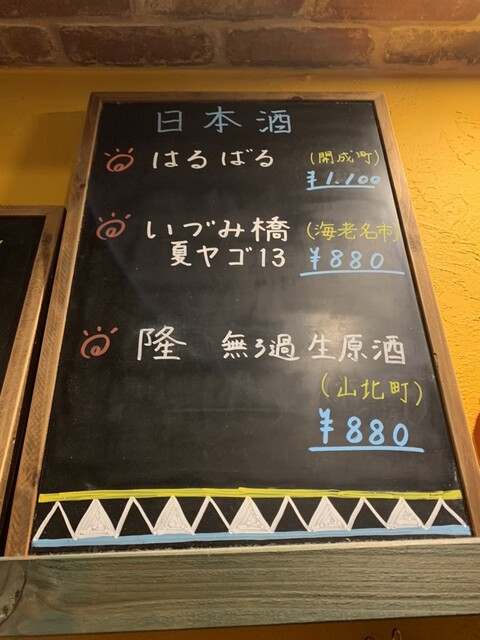 日本酒
はるばる (開成町)
¥1.100
いづみ橋 (海老名市)
夏ヤゴ13 ¥880
隆 無ろ過生原酒
(山北町)
¥880